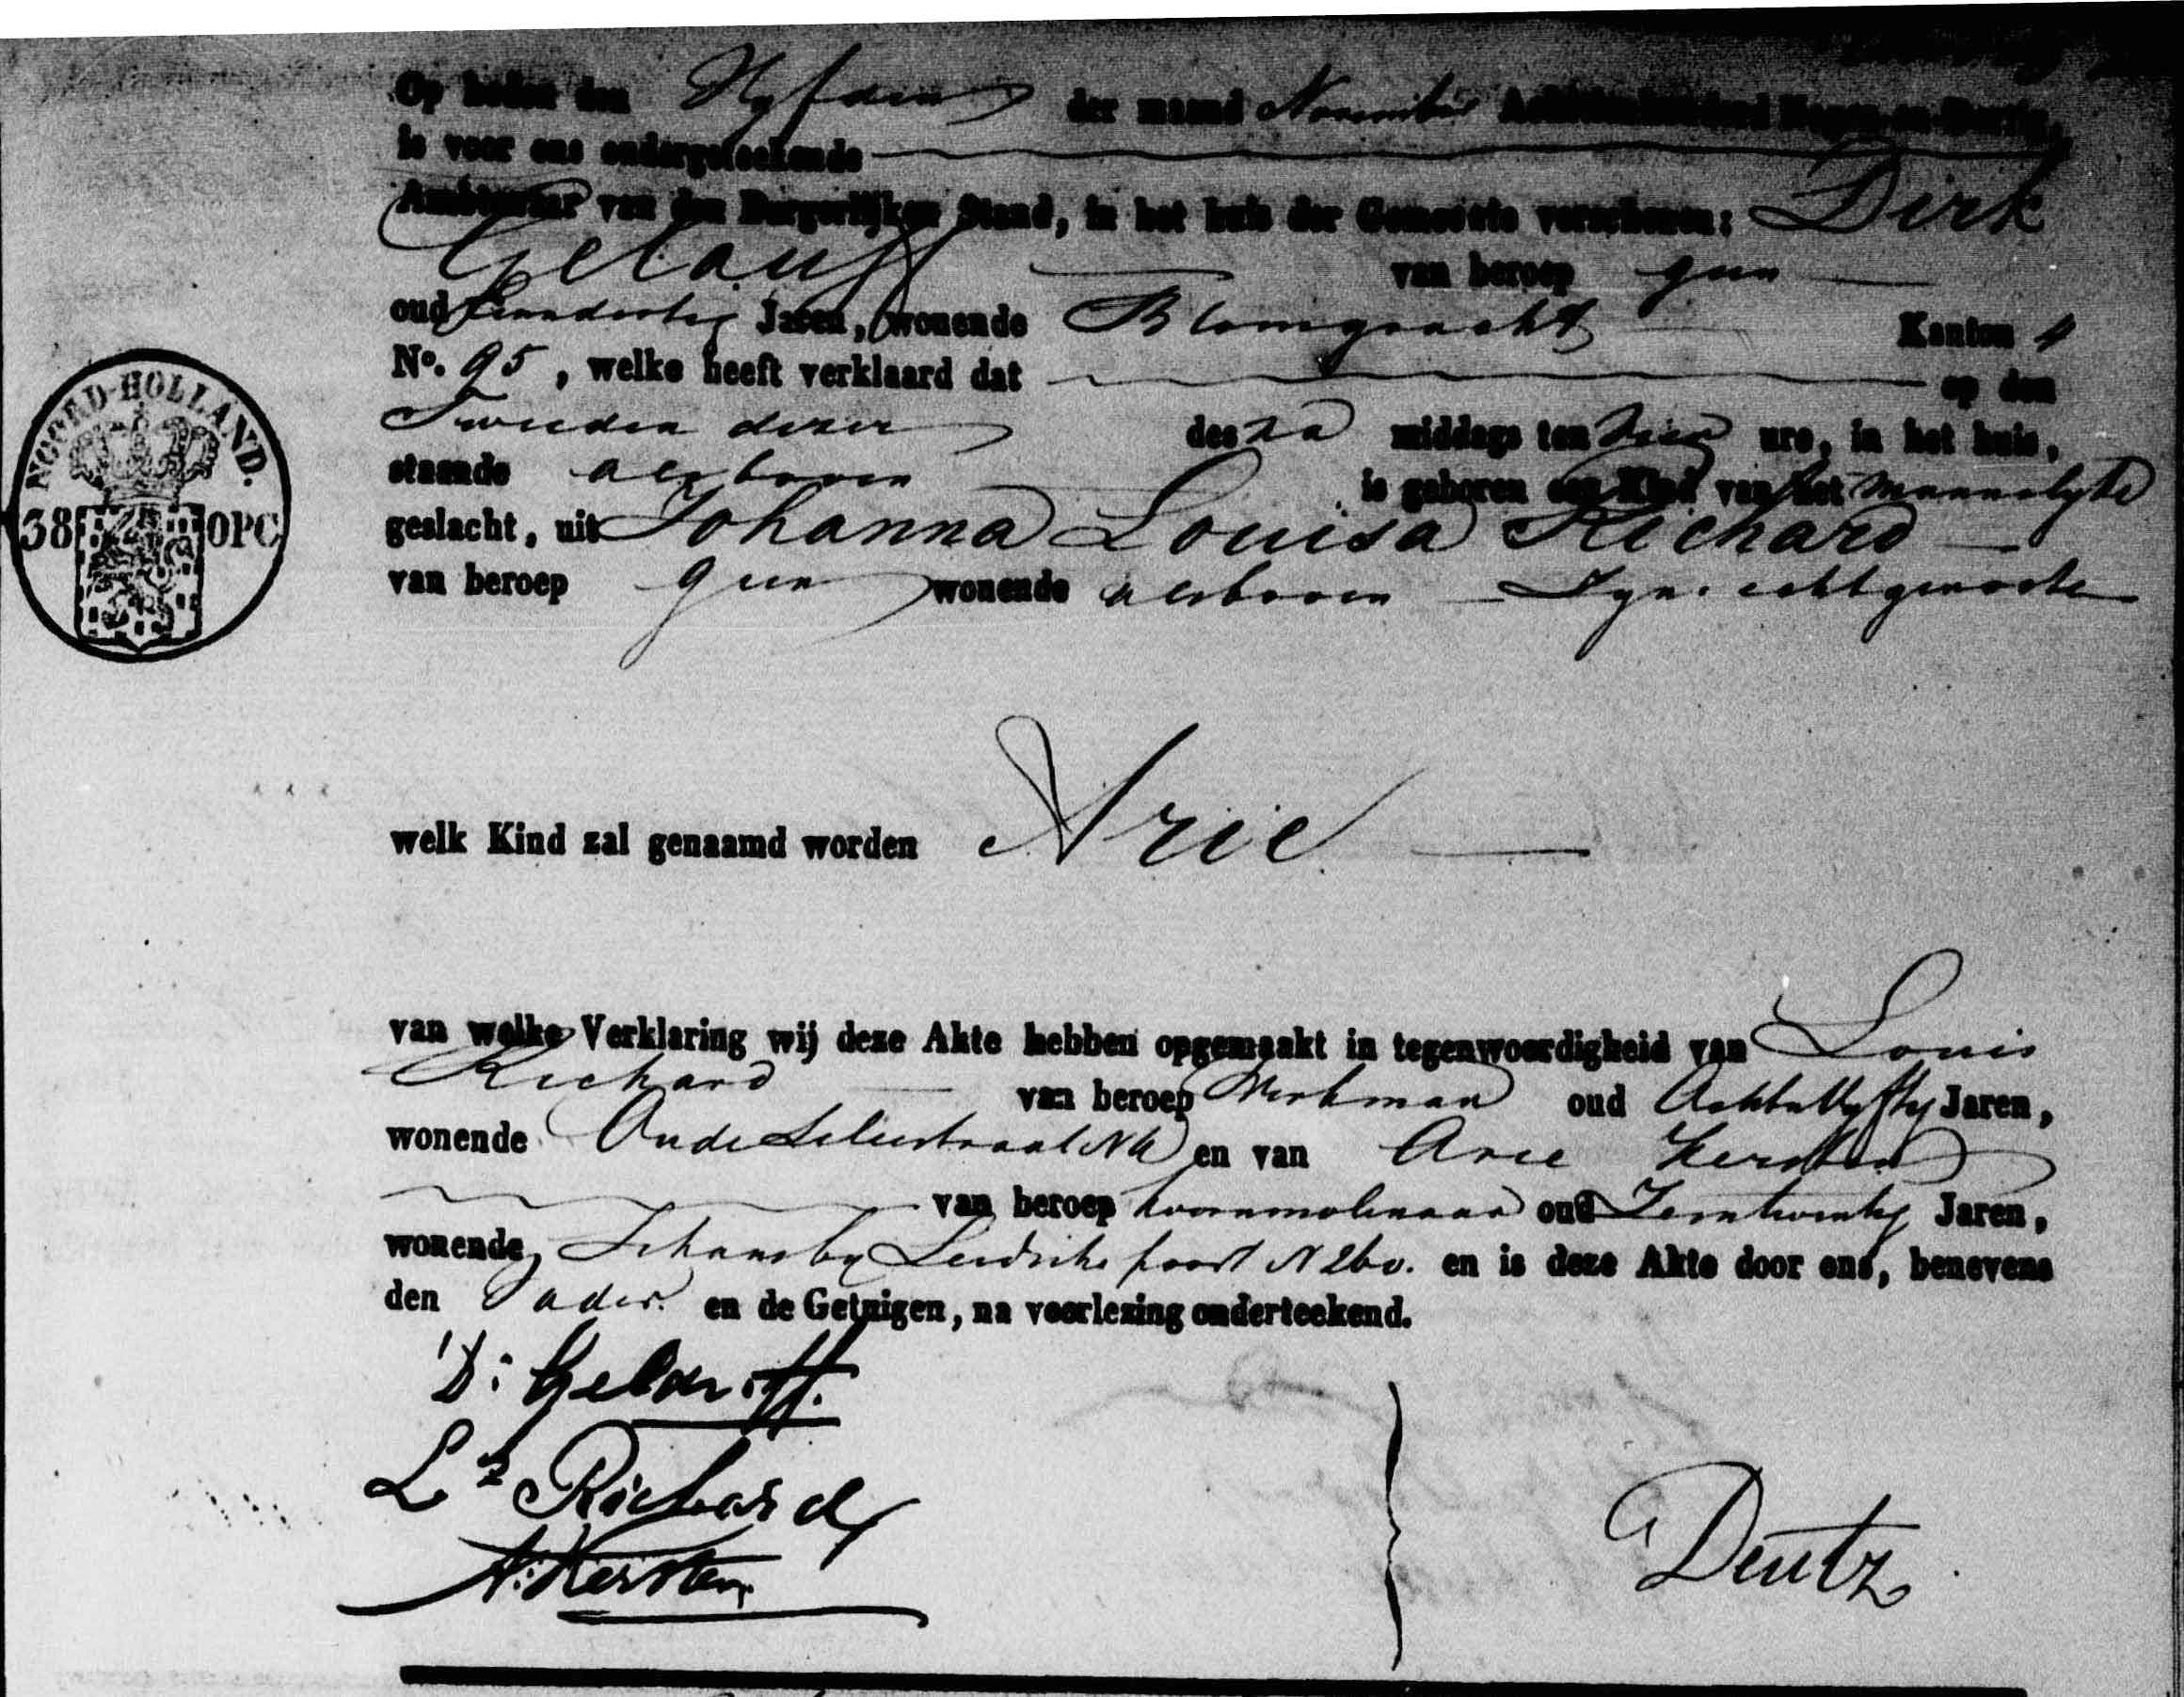 Op heden den Vyfden der maand November Achttienhonderd Negen en Dertig,
is voor ons ondergeteekende
Ambtenaar van den Burgerlijken Stand, in het huis der Gemeente verschenen: Dirk
van beroep geen
oud Jaren, wonende Blomgracht Kanton 4
No. 95, welke heeft verklaard dat op den
Tweeden dezer des na middags ten ure, in het huis,
staande alsboven is geboren een Kind van het mannelyke
geslacht, uit Johanna Louisa Richard
van beroep geen wonende alsboven Zyne echtgenoote
NOORD-HOLLAND.
38 OPC
welk Kind zal genaamd worden Arie
van welke Verklaring wij deze Akte hebben opgemaakt in tegenwoordigheid van Louis
Richard van beroep Werkman oud Achtenvyftig Jaren,
wonende Oude Leliestraat en van Arie Kersten
van beroep koornmolenaar oud Jaren,
wonende Schans by Leidsche poort en is deze Akte door ons, benevens
den Vader en de Getuigen, na voorlezing onderteekend.
D: Gelauff.
Ls Richard
A: Kersten
Deutz